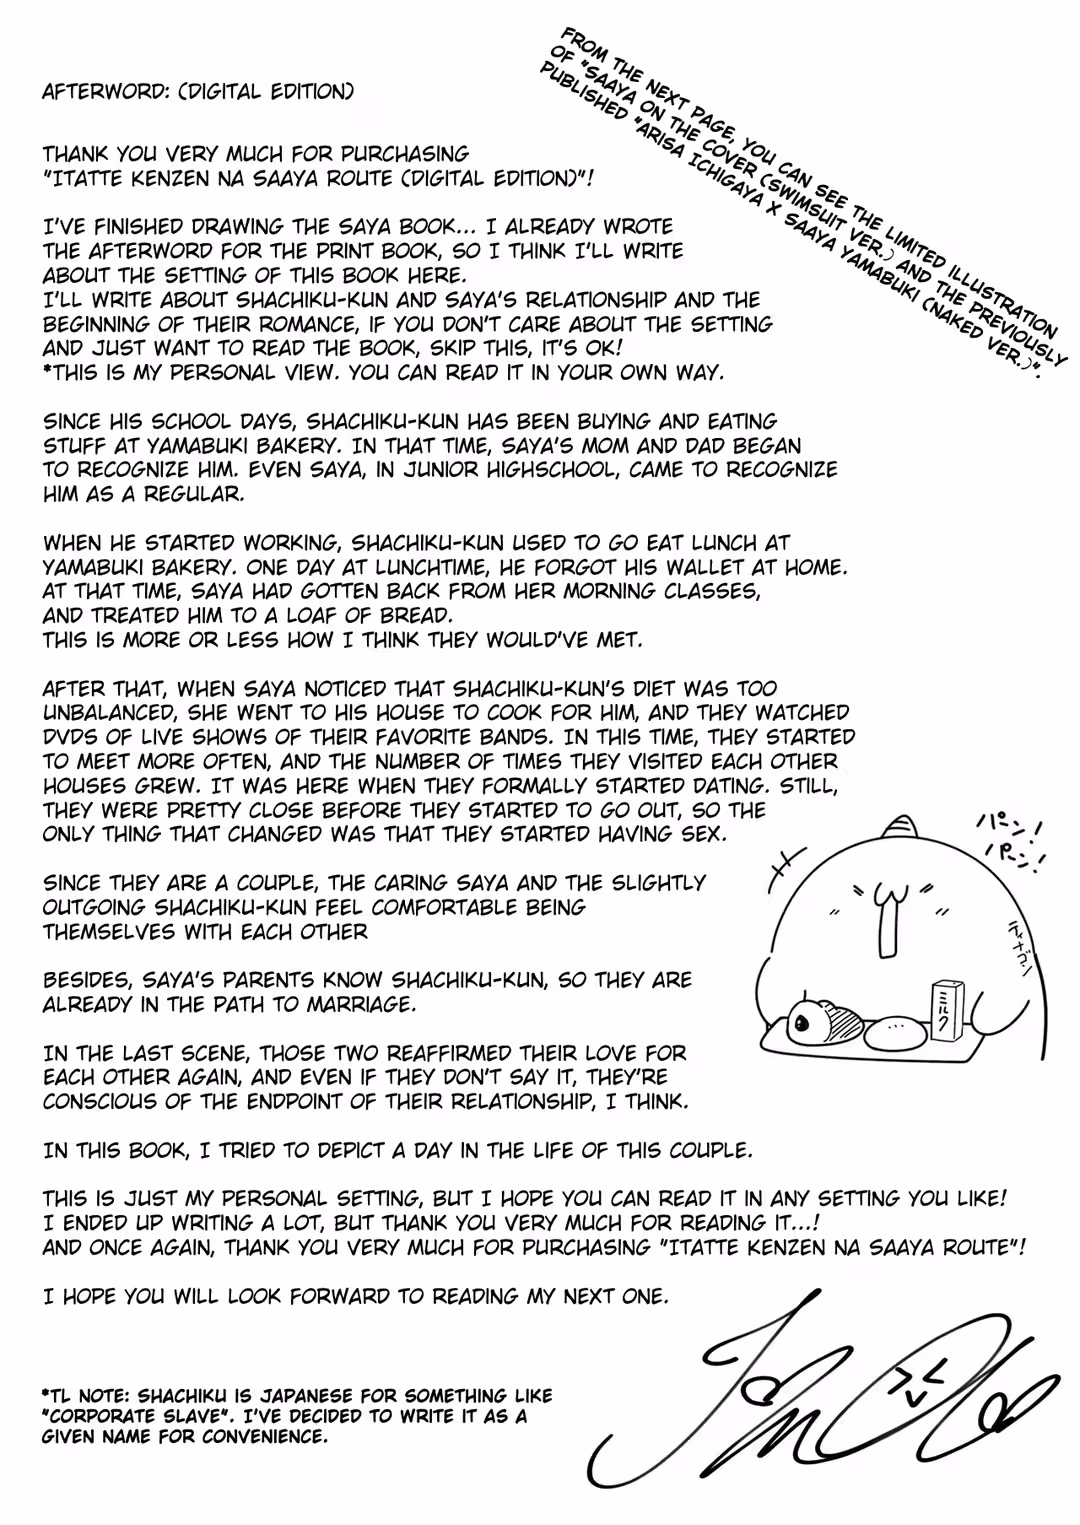 FROM THE NEXT PAGE, YOU CAN SEE THE LIMITED ILLUSTRATION
OF "SAAYA ON THE COVER (SWIMSUIT VER.) AND THE PREVIOUSLY
PUBLISHED "ARISA ICHIGAYA X SAAYA YAMABUKI (NAKED VER.)".
AFTERWORD: (DIGITAL EDITION)
THANK YOU VERY MUCH FOR PURCHASING
"ITATTE KENZEN NA SAAYA ROUTE (DIGITAL EDITION)"!
I'VE FINISHED DRAWING THE SAYA BOOK... I ALREADY WROTE
THE AFTERWORD FOR THE PRINT BOOK, SO I THINK I'LL WRITE
ABOUT THE SETTING OF THIS BOOK HERE.
I'LL WRITE ABOUT SHACHIKU-KUN AND SAYA'S RELATIONSHIP AND THE
BEGINNING OF THEIR ROMANCE, IF YOU DON'T CARE ABOUT THE SETTING
AND JUST WANT TO READ THE BOOK, SKIP THIS, IT'S OK!
*THIS IS MY PERSONAL VIEW. YOU CAN READ IT IN YOUR OWN WAY.
SINCE HIS SCHOOL DAYS, SHACHIKU-KUN HAS BEEN BUYING AND EATING
STUFF AT YAMABUKI BAKERY. IN THAT TIME, SAYA'S MOM AND DAD BEGAN
TO RECOGNIZE HIM. EVEN SAYA, IN JUNIOR HIGHSCHOOL, CAME TO RECOGNIZE
HIM AS A REGULAR.
WHEN HE STARTED WORKING, SHACHIKU-KUN USED TO GO EAT LUNCH AT
YAMABUKI BAKERY. ONE DAY AT LUNCHTIME, HE FORGOT HIS WALLET AT HOME.
AT THAT TIME, SAYA HAD GOTTEN BACK FROM HER MORNING CLASSES,
AND TREATED HIM TO A LOAF OF BREAD.
THIS IS MORE OR LESS HOW I THINK THEY WOULD'VE MET.
AFTER THAT, WHEN SAYA NOTICED THAT SHACHIKU-KUN'S DIET WAS TOO
UNBALANCED, SHE WENT TO HIS HOUSE TO COOK FOR HIM, AND THEY WATCHED
DVDS OF LIVE SHOWS OF THEIR FAVORITE BANDS. IN THIS TIME, THEY STARTED
TO MEET MORE OFTEN, AND THE NUMBER OF TIMES THEY VISITED EACH OTHER
HOUSES GREW. IT WAS HERE WHEN THEY FORMALLY STARTED DATING. STILL,
THEY WERE PRETTY CLOSE BEFORE THEY STARTED TO GO OUT, SO THE
ONLY THING THAT CHANGED WAS THAT THEY STARTED HAVING SEX.
パーン!
パーン!
ミルク
SINCE THEY ARE A COUPLE, THE CARING SAYA AND THE SLIGHTLY
OUTGOING SHACHIKU-KUN FEEL COMFORTABLE BEING
THEMSELVES WITH EACH OTHER
BESIDES, SAYA'S PARENTS KNOW SHACHIKU-KUN, SO THEY ARE
ALREADY IN THE PATH TO MARRIAGE.
IN THE LAST SCENE, THOSE TWO REAFFIRMED THEIR LOVE FOR
EACH OTHER AGAIN, AND EVEN IF THEY DON'T SAY IT, THEY'RE
CONSCIOUS OF THE ENDPOINT OF THEIR RELATIONSHIP, I THINK.
IN THIS BOOK, I TRIED TO DEPICT A DAY IN THE LIFE OF THIS COUPLE.
THIS IS JUST MY PERSONAL SETTING, BUT I HOPE YOU CAN READ IT IN ANY SETTING YOU LIKE!
I ENDED UP WRITING A LOT, BUT THANK YOU VERY MUCH FOR READING IT...!
AND ONCE AGAIN, THANK YOU VERY MUCH FOR PURCHASING "ITATTE KENZEN NA SAAYA ROUTE"!
I HOPE YOU WILL LOOK FORWARD TO READING MY NEXT ONE.
*TL NOTE: SHACHIKU IS JAPANESE FOR SOMETHING LIKE
"CORPORATE SLAVE". I'VE DECIDED TO WRITE IT AS A
GIVEN NAME FOR CONVENIENCE.